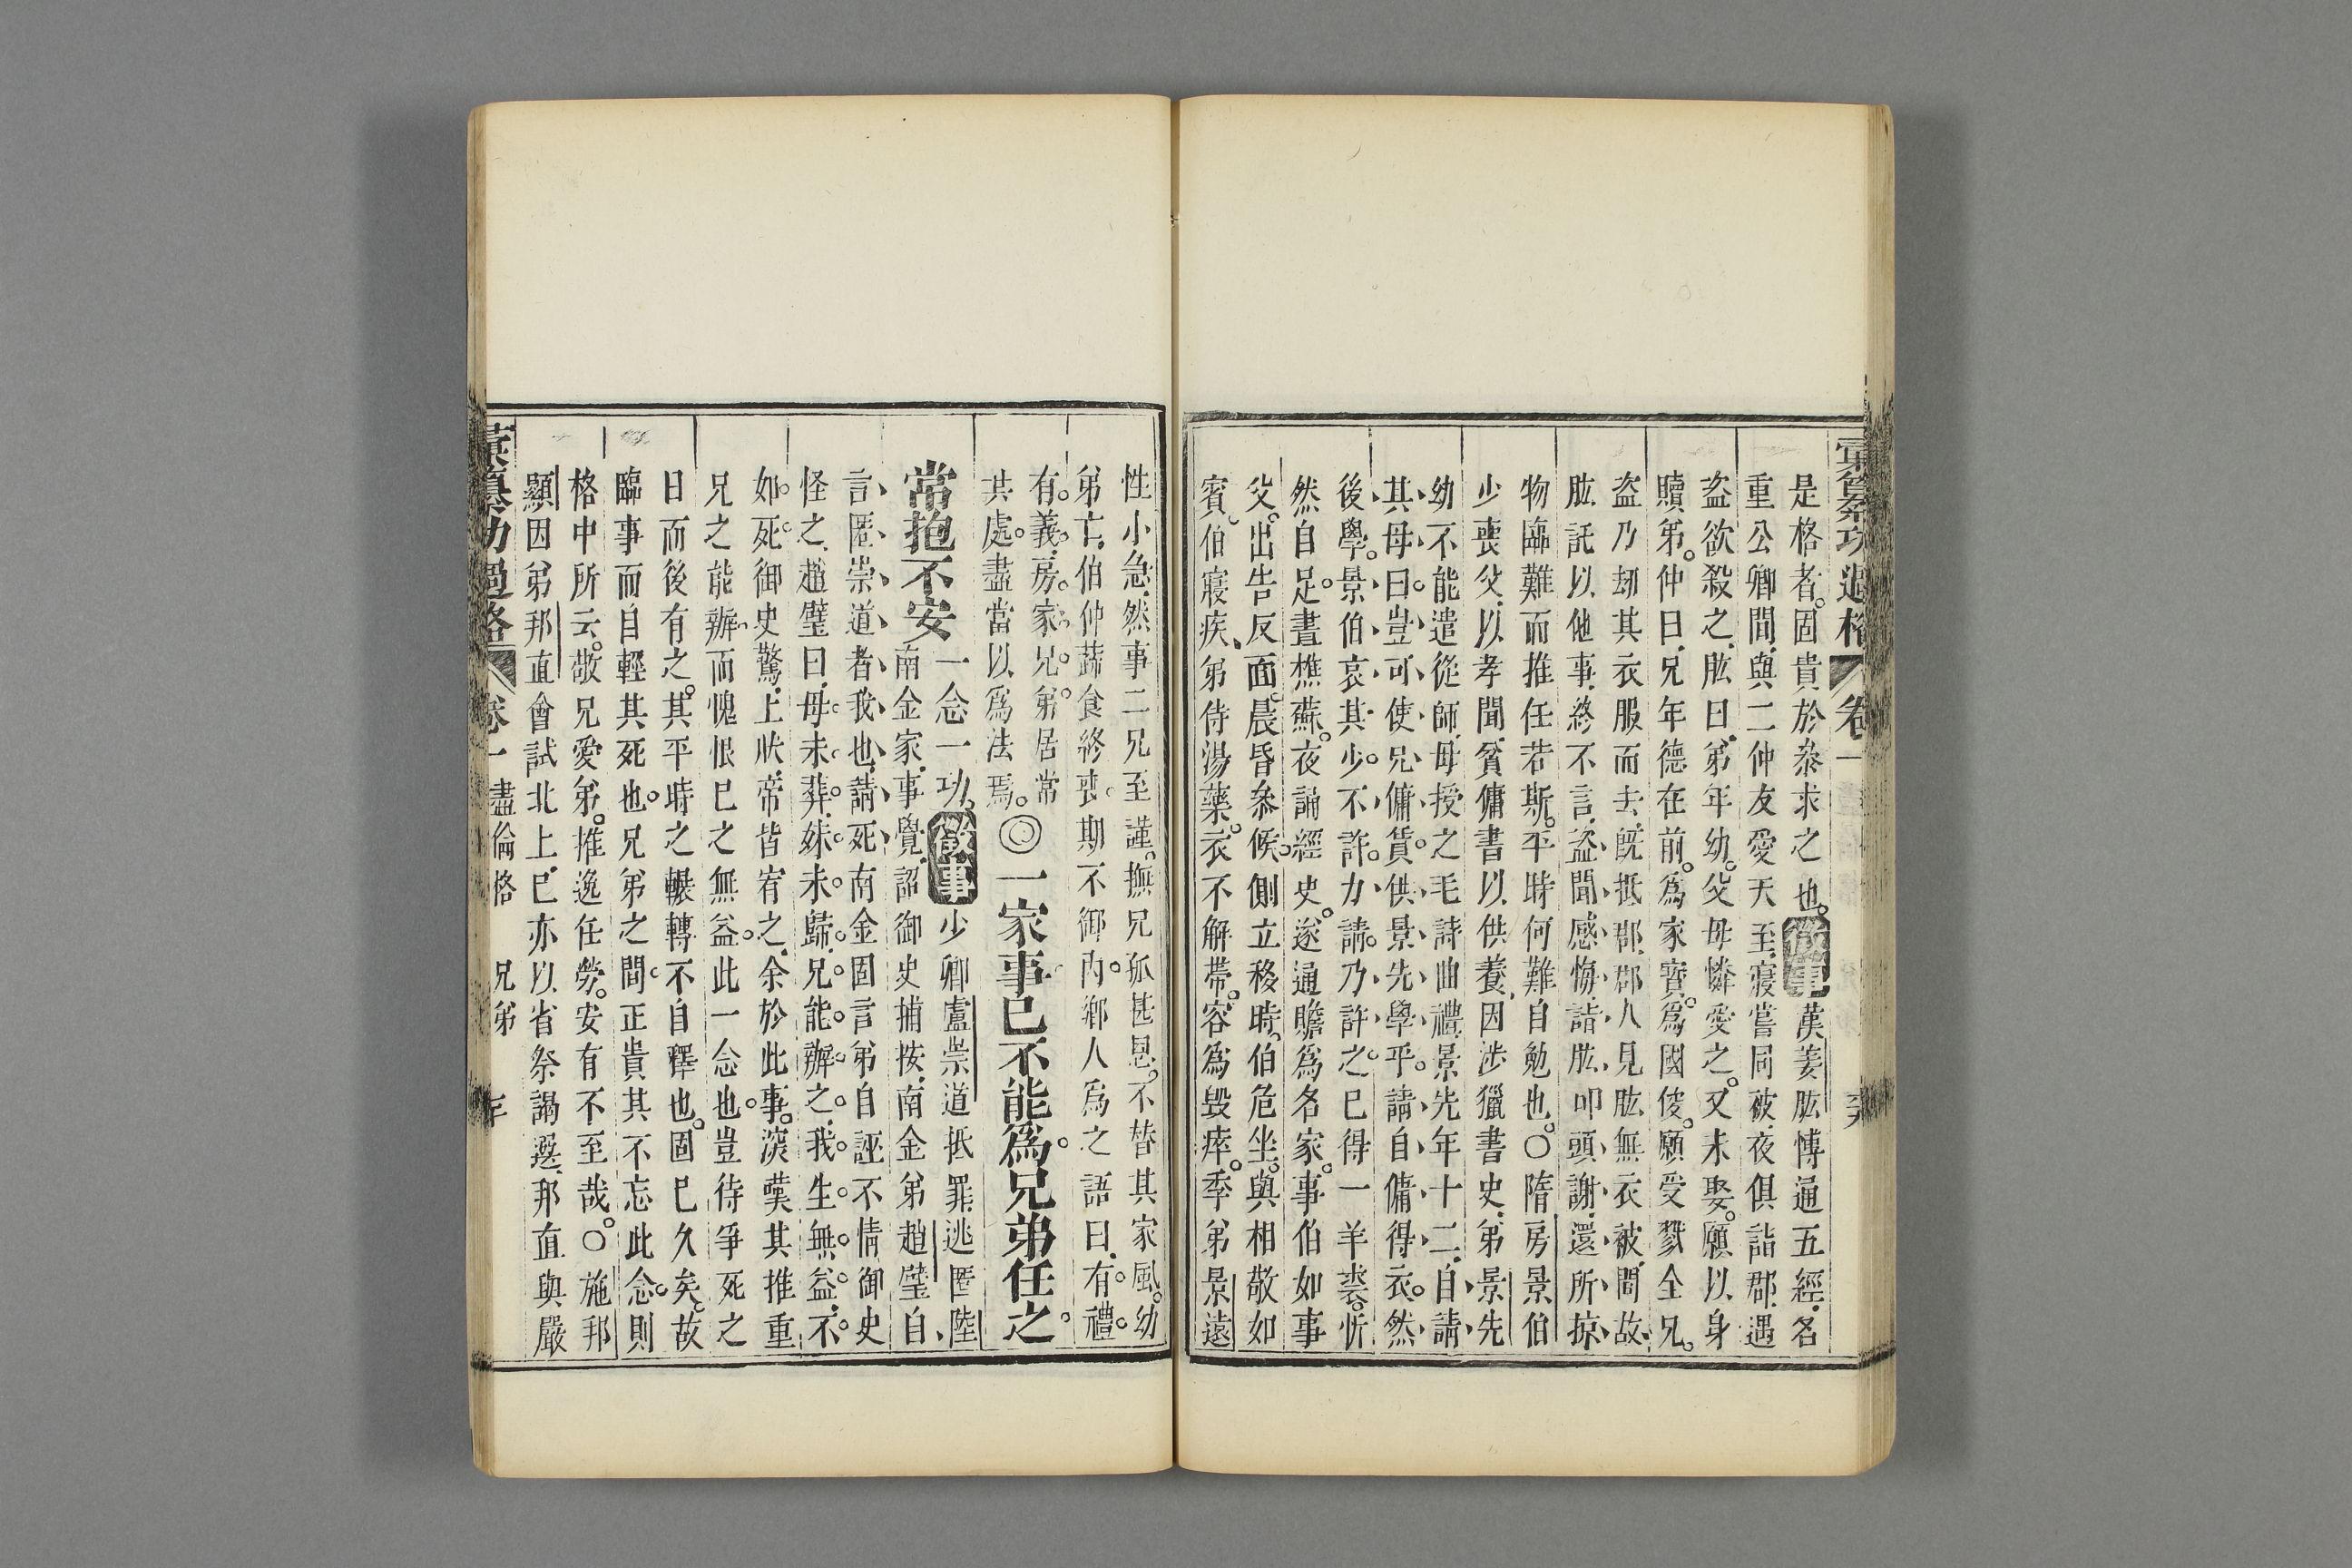 彙纂功過格 卷一
是格者。固貴於叅求之也。徵事漢姜肱博通五經。名
重公卿間。與二仲友愛天至。寢嘗同被。夜俱詣郡。遇
盜欲殺之。肱曰。弟年幼。父母憐愛之。又未娶。願以身
贖弟。仲曰。兄年德在前。爲家寶。爲國俊。願受戮全兄。
盜乃刼其衣服而去。旣抵郡。郡人見肱無衣被。問故。
肱託以他事。終不言。盜聞感悔。詣肱叩頭謝。還所掠
物。臨難而推任若斯。平時何難自勉也。○隋房景伯
少喪父。以孝聞。貧傭書以供養。因涉獵書史。弟景先
幼不能遣從師。母授之毛詩曲禮。景先年十二。自請
其母曰。豈可使兄傭賃供景先學乎。請自傭得衣。然
後學。景伯哀其少。不許。力請。乃許之。已得一羊裘。忻
然自足。晝樵蘇。夜誦經史。遂通贍爲名家。事伯如事
父。出告反面。晨昏叅候。側立移時。伯危坐。與相敬如
賓。伯寢疾。弟侍湯藥。衣不解帶。容爲毀瘁。季弟景遠
性小急。然事二兄至謹。撫兄孤甚恩。不替其家風。幼
弟亡。伯仲蔬食終喪。期不御內。鄉人爲之語曰。有禮
有義。房家兄弟。居常
其處。盡當以爲法焉。◎一家事已不能爲兄弟任之
常抱不安 一念一功。徵事少卿盧崇道抵罪。逃匿陸
南金家。事覺。詔御史捕按。南金弟趙璧自
言匿崇道者我也。請死。南金固言弟自誣不情。御史
怪之。趙璧曰。母未葬。妹未歸。兄能辦之。我生無益。不
如死。御史驚。上狀。帝皆宥之。余於此事。深嘆其推重
兄之能辦。而愧恨己之無益。此一念也。豈待爭死之
日而後有之。其平時之輾轉不自釋也。固已久矣。故
臨事而自輕其死也。兄弟之間。正貴其不忘此念。則
格中所云。敬兄愛弟。推逸任勞。安有不至哉。○施邦
顯因弟邦直會試北上。已亦以省祭謁選。邦直與嚴
彙纂功過格 卷一 盡倫格 兄弟